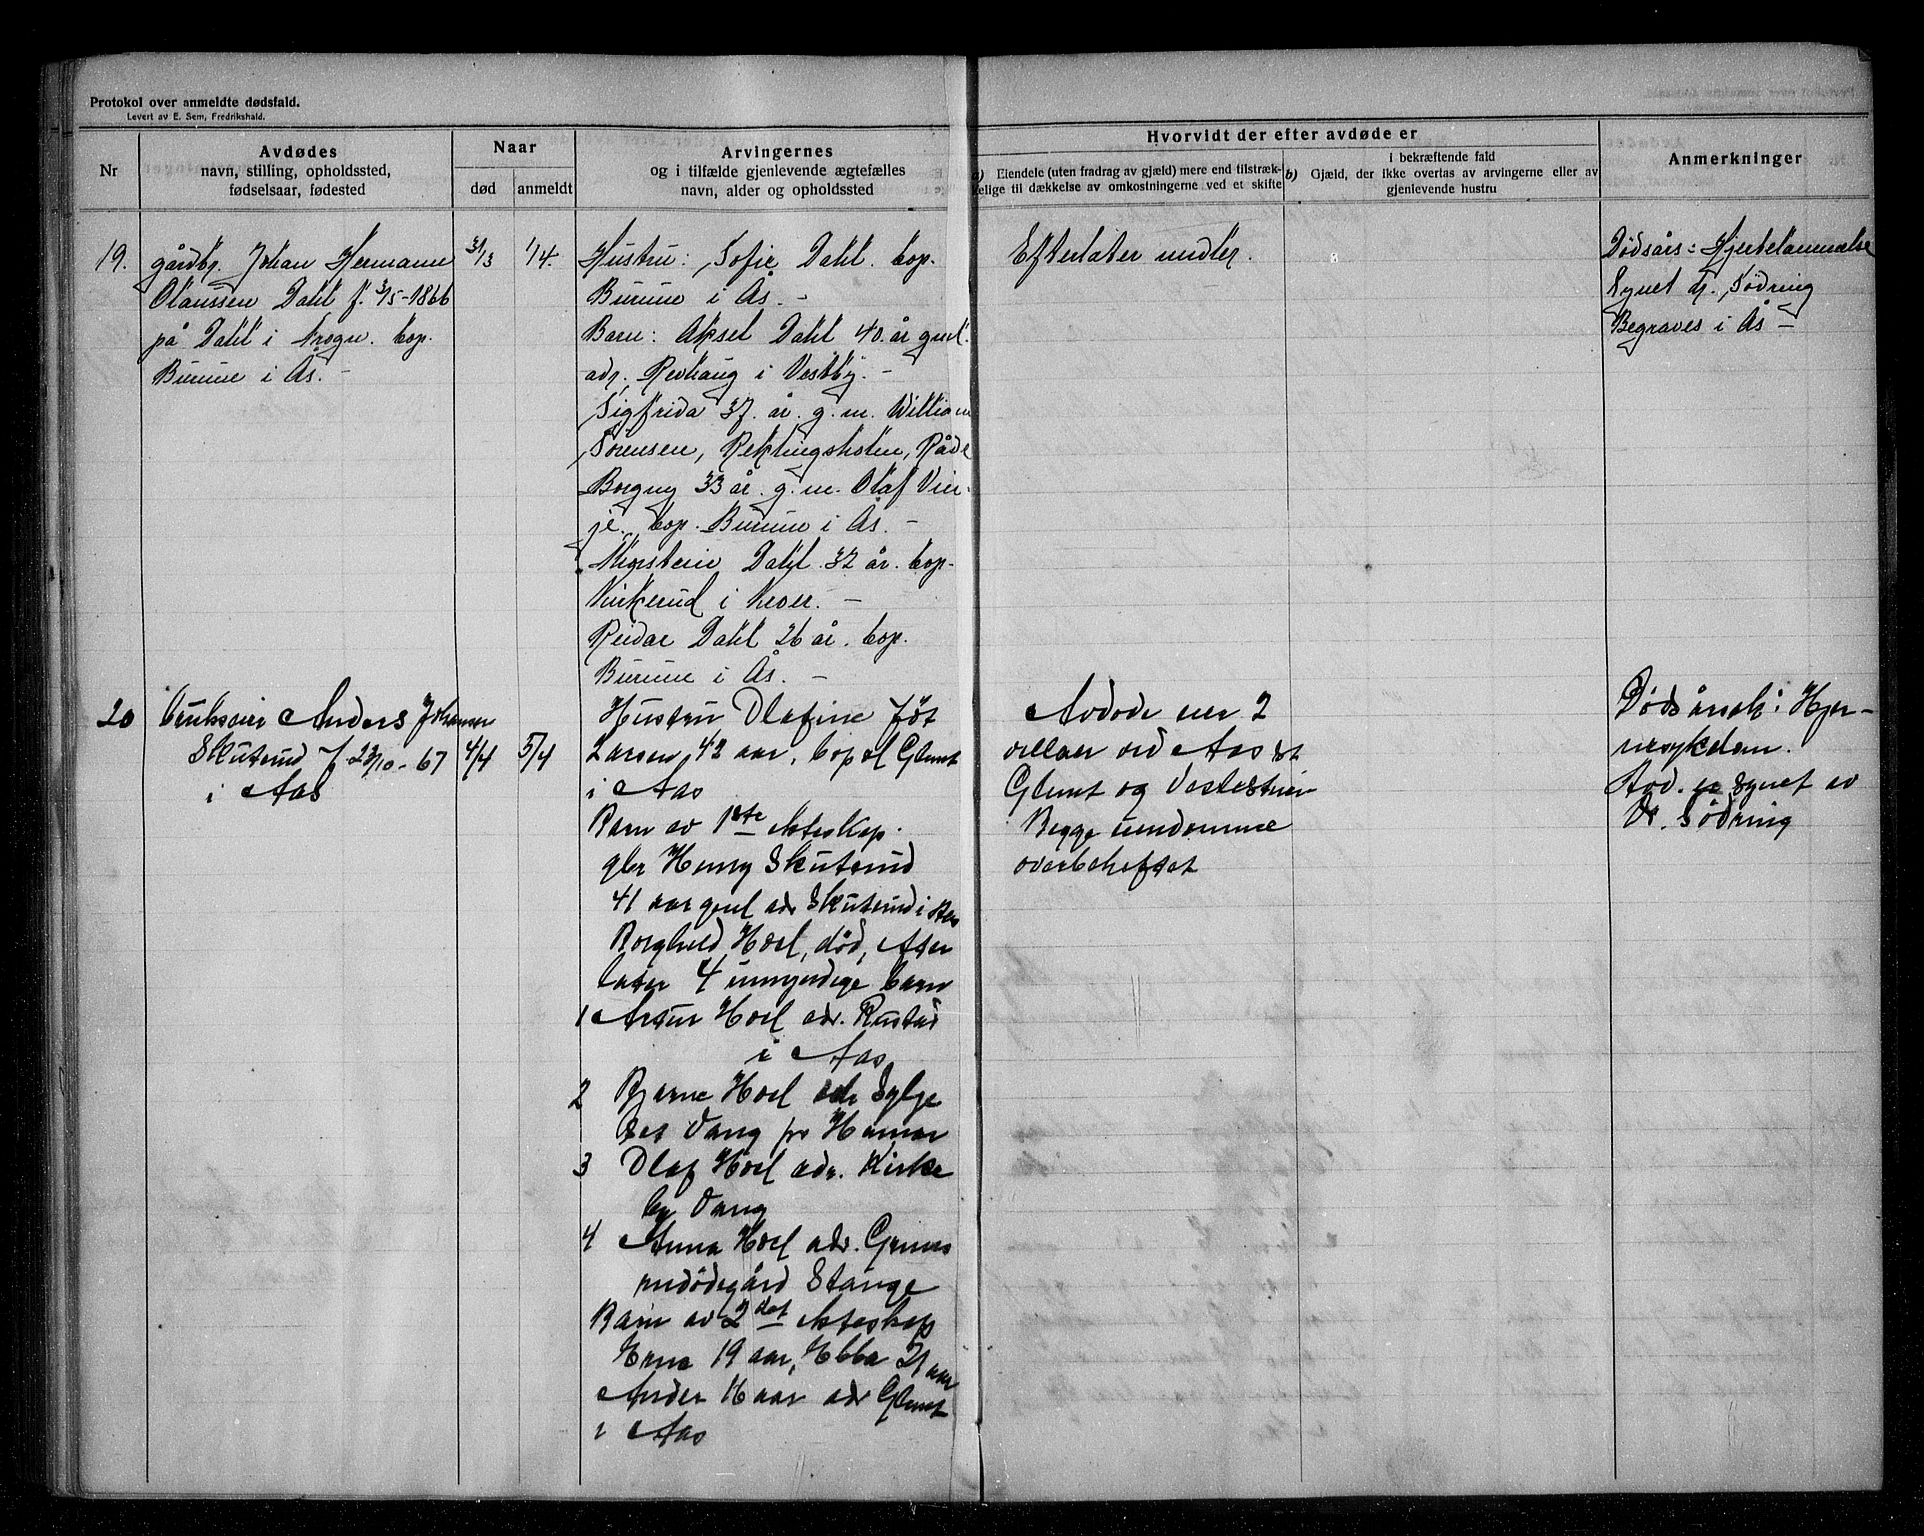 Protokol over anmeldte dødsfald.
Levert av E. Sem, Fredrikshald.
Nr
Avdødes
navn, stilling, opholdssted,
fødselsaar, fødested
Naar
død
anmeldt
Arvingernes
og i tilfælde gjenlevende ægtefælles
navn, alder og opholdssted
Hvorvidt der efter avdøde er
a) Eiendele (uten fradrag av gjæld) mere end tilstræk-
kelige til dækkelse av omkostningerne ved et skifte
I bekræftende fald
b) Gjæld, der ikke overtas av arvingerne eller av
gjenlevende hustru
Anmerkninger
19.
gårdbr. Johan Hermann
Olaussen Dahl f. 3/5-1866
på Dahl i Krogn. bop.
Burume i Ås. -
31/3
1/4.
Hustru: Sofie Dahl. bop.
Burume i Ås. -
Barn: Aksel Dahl 40 år gml.
adr. Revhaug i Vestby. -
Sigfrida 37. år. g. m. William
Sørensen, Rektingsholen, Råde
Borgny 33 år. g. m. Olaf Vier-
je. bop. Burume i Ås. -
Dahl. 32 år. bop.
i -
Reidar Dahl 26 år. bop.
Burume i Ås. -
Efterlater midler.
Dødsårs: Hjertelammelse
Synet dr. Sødring
Begraves i Ås -
20
Anders Johansen
Skuterud f 23/10-67
i Aas
4/4
5/4
Hustru Olafine f
Larsen, 42 aar, bop
i Aas
Barn av 1ste ekteskap.
gbr Henry Skuterud
41 aar gml adr Skuterud i Aas
Borghild Hoel, død, efter
later 4 umyndige barn
1 Artur Hoel adr. Rustad
i Aas
2 Bjarne Hoel adr Sylje
set Vang pr Hamar
3 Olaf Hoel adr. Kirke
by Vang
4 Anna Hoel adr.
Stange
Barn av 2det ekteskap
19 aar, Ebba 21 aar
Anders 16 aar adr
i Aas
Avdøde eier 2
villaer ved Aas st
og
Begge eiendomme
overbeheftet
Dødsårsak: Hjer-
nesykdom.
Avd. er synet av
Dr. Sødring